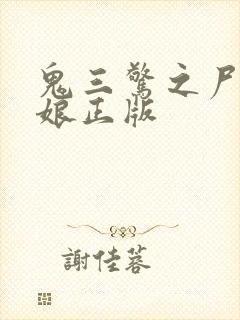 鬼三驚之尸
娘正版
謝佳蓉